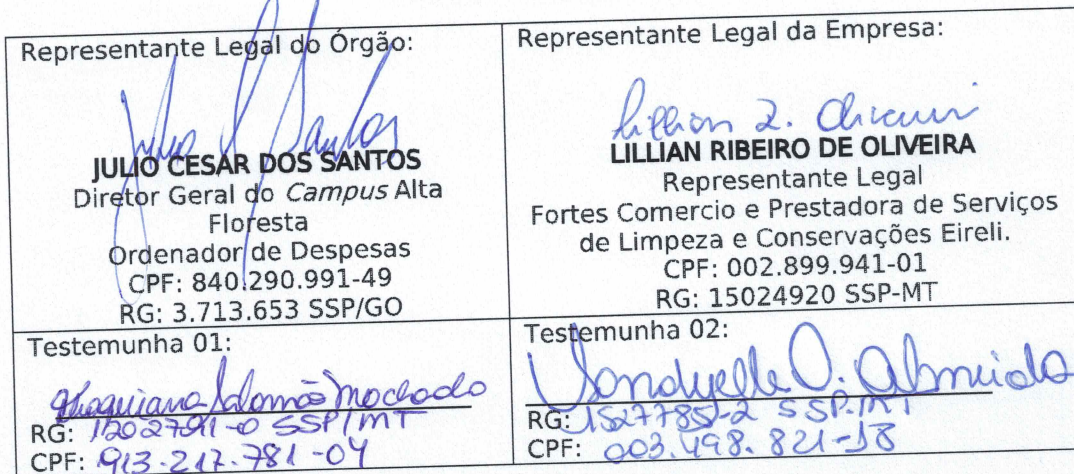 Representante Legal do Órgão:
Julio Santos
JULIO CESAR DOS SANTOS
Diretor Geral do Campus Alta
Floresta
Ordenador de Despesas
CPF: 840.290.991-49
RG: 3.713.653 SSP/GO
Representante Legal da Empresa:
Lillian R. Oliveira
LILLIAN RIBEIRO DE OLIVEIRA
Representante Legal
Fortes Comercio e Prestadora de Serviços
de Limpeza e Conservações Eireli.
CPF: 002.899.941-01
RG: 15024920 SSP-MT
Testemunha 01:
Salomão Machado
RG: SSP/MT
CPF: 913.217.781-04
Testemunha 02:
O. Almeida
RG: 1527785-2 SSP.MT
CPF: 003.498.821-18